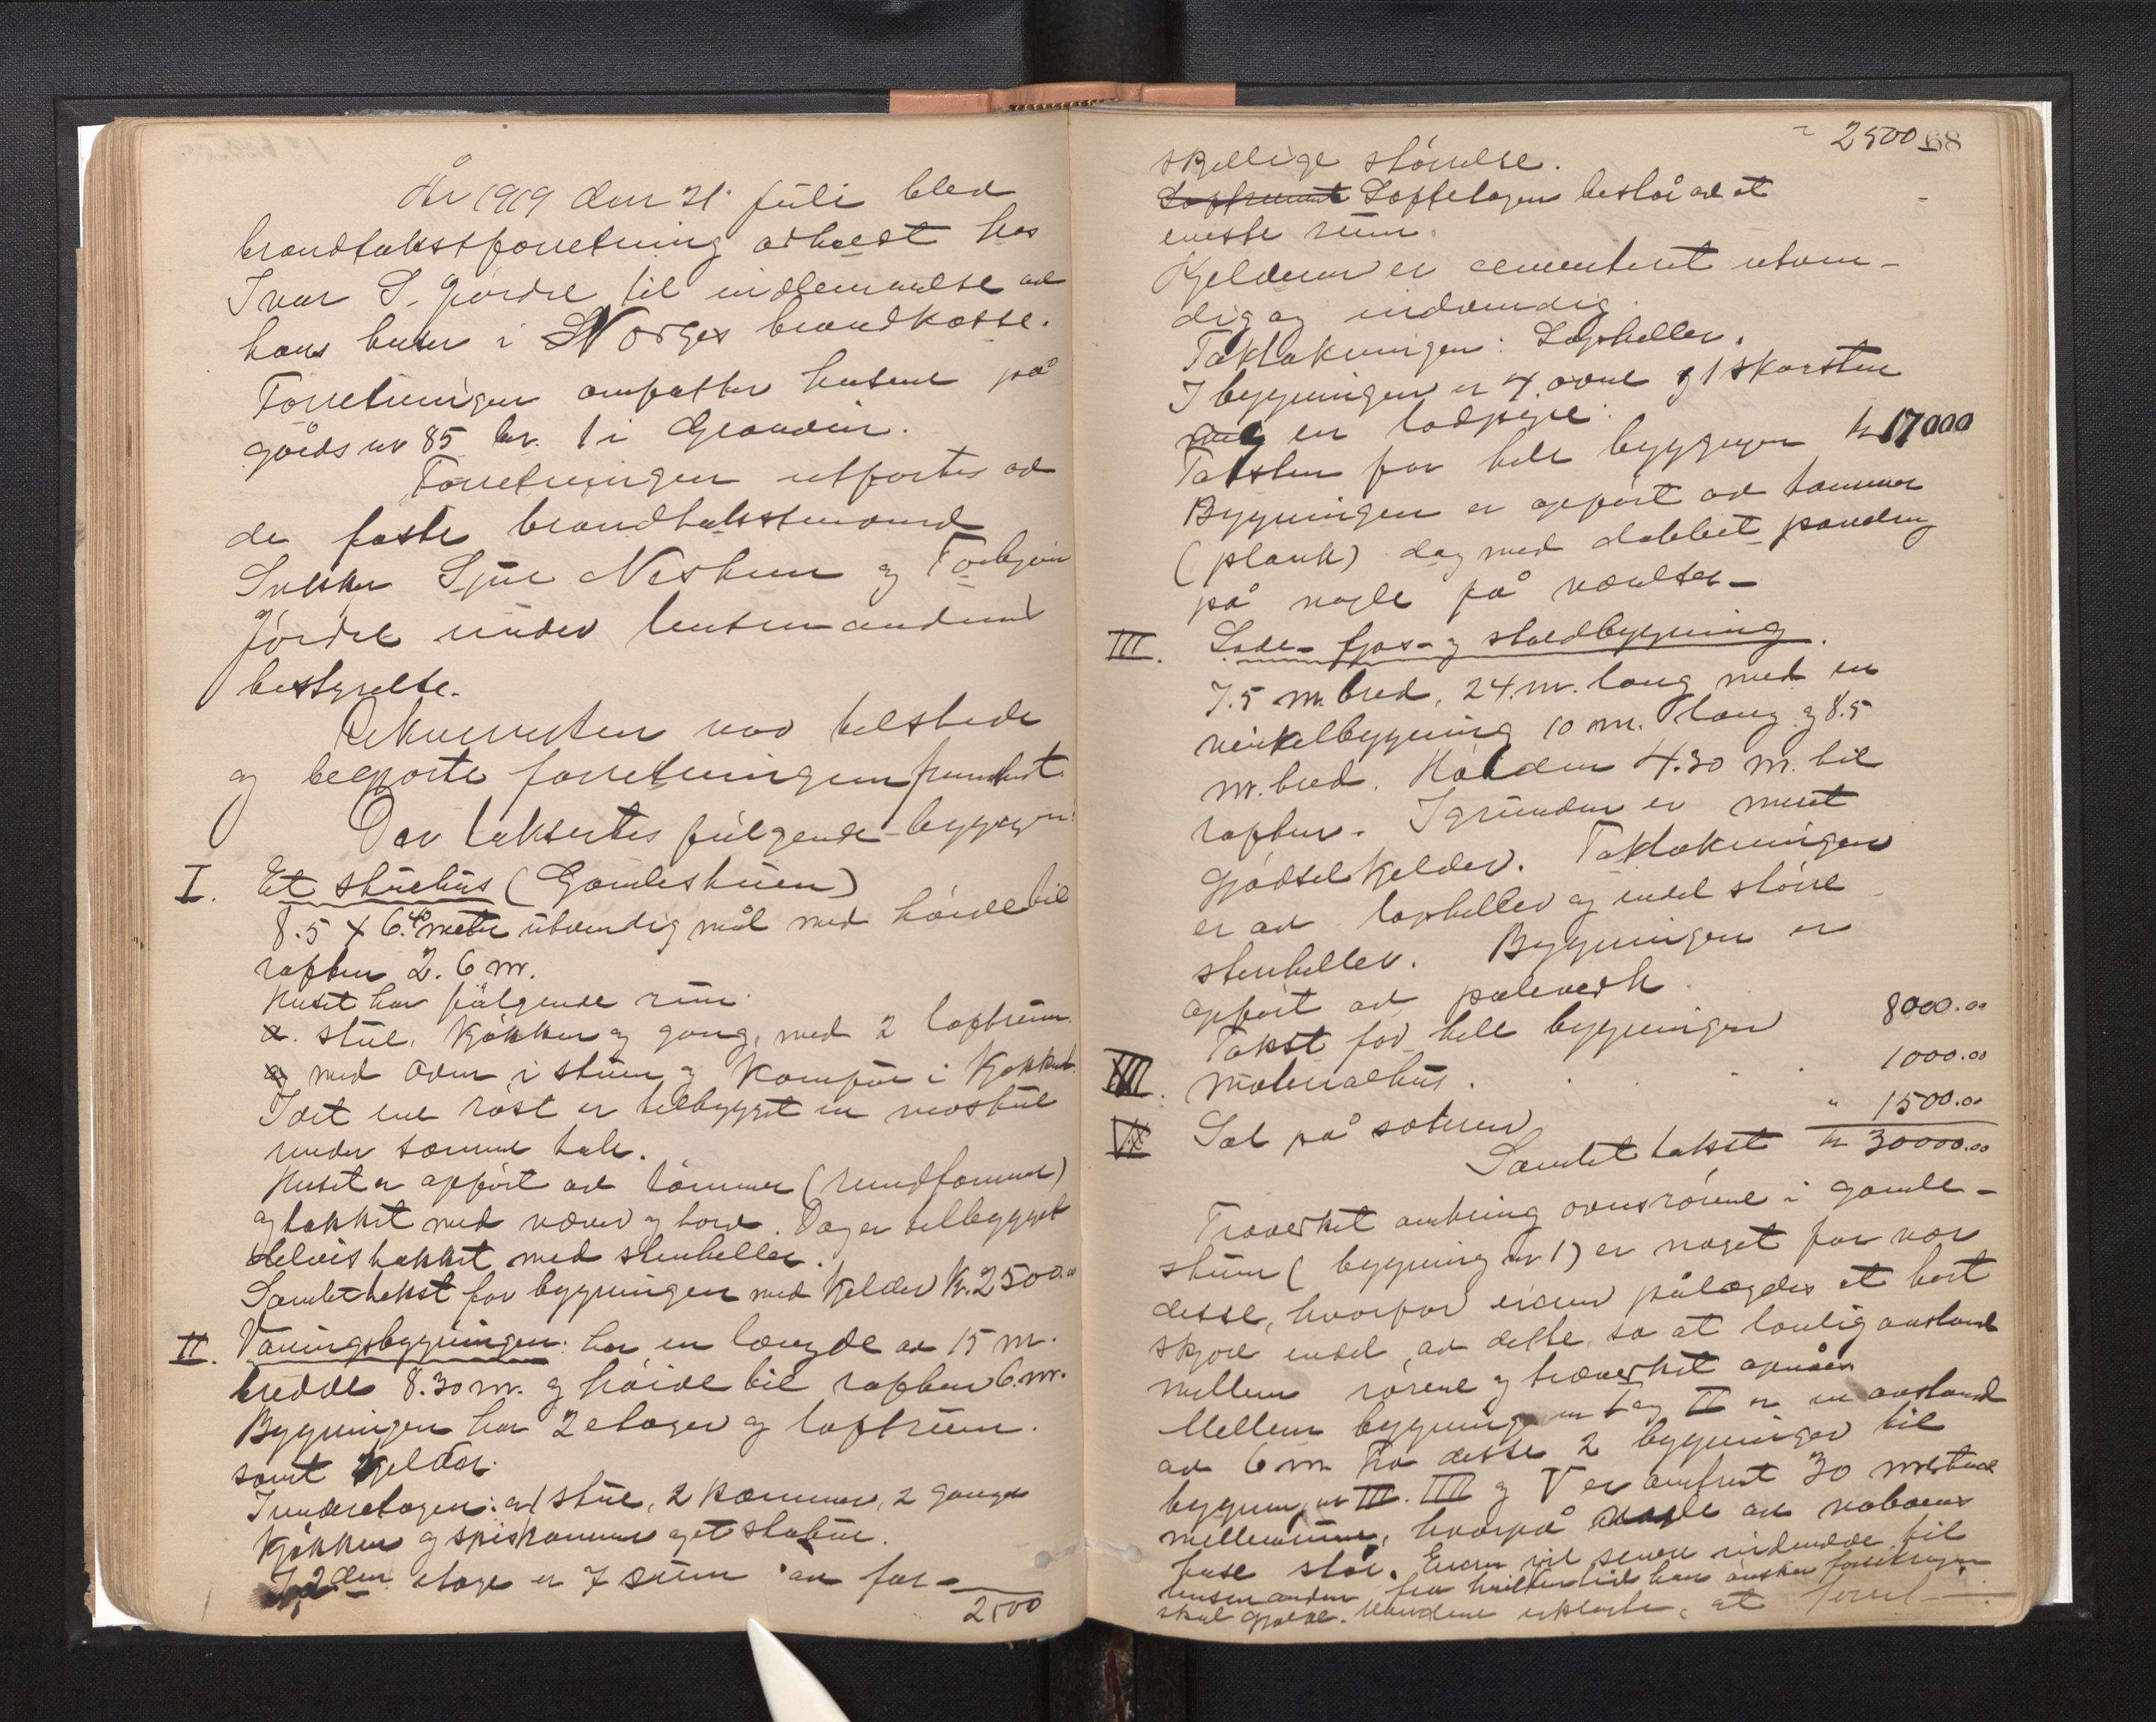 År 1919 den 21 juli blev
brandtakstforretning avholdt hos
Ivar S. Jørdre til indlemmelse av
hans huser i Norges brandkasse.
Forretningen omfatter husene på
gårds nr 85 br. 1 i
Forretningen utførtes av
de faste brandtakstmænd
Sjur Neshein og Torbjørn
Jørdre under lensmandens
bestyrelse.
Rekvirenten var tilstede
og begjærte forretningen fremmet.
Der takseredes følgende bygninger:
I. Et stuehus (Gamlestuen)
8.5 x 6.40 meter utvendig mål med høide til
raften 2.6 m.
Huset har følgende rum:
a. stue, kjøkken og gang, med 2 loftrum.
med ovn i stuen og komfur i kjøkken.
I det ene røst er tilbygget en
under samme tak.
Huset er opført av tømmer (rundtømmer)
og takket med næver og tord. Og er tilbygget
delvis takket med stenheller.
Samlet takst for bygningen med kjelder kr. 2500.00
II. Våningsbygningen: har en længde av 15 m.
bredde 8.30 m. og høide til raften 6. m.
Bygningen har 2 etager og loftrum.
samt kjelder.
I underetagen: 1 stue, 2 kammer, 2 gange
kjøkken og spiskammer og et stabur.
I 2den etage er 7 rum av for-
2500
2500 68
skjellige størrelse.
Loftrummet Loftetagen består av et
eneste rum.
Kjelderen er cementeret utven-
dig og indvendig.
Taktækningen: Lapheller.
I bygningen er 4 ovne og 1 skorsten
en
Taksten for hele bygningen kr 17000
Bygningen er opført av tømmer
(plank) og med dobbelt panding
på nogle få
III. Lade- fjøs- og staldbygning.
7.5 m. bred, 24. m. lang med en
vinkelbygning 10 m. lang og 8.5
m. bred. Høiden 4.30 m. til
raften. I grunden er muret
gjødselkjelder. Taktækningen
er av lapheller og endel større
stenheller. Bygningen er
opført av
Takst for hele bygningen 8000.00
Materialhus. 1000.00
Sel på støleren " 1500.00
Samlet takst kr 30000.00
Træverket omkring ovnsrørene i gamle-
stuen (bygning nr 1) er noget for nær
desse, hvorfor eieren pålægdes at bort
skjære endel av dette, så at lovlig avstand
mellem rørene og træverket opnåes
Mellem bygningen I og II er en avstand
av 6 m. Fra desse 2 bygninger til
bygning nr III. IIII og V er omtrent 30 meters
mellemrum, hvorpå nogle av naboens
huse står. Eieren vil senere indmelde til
lensmanden fra hvilken tid han ønsker forsikringen
skal gjælde. Mændene erklærte, at